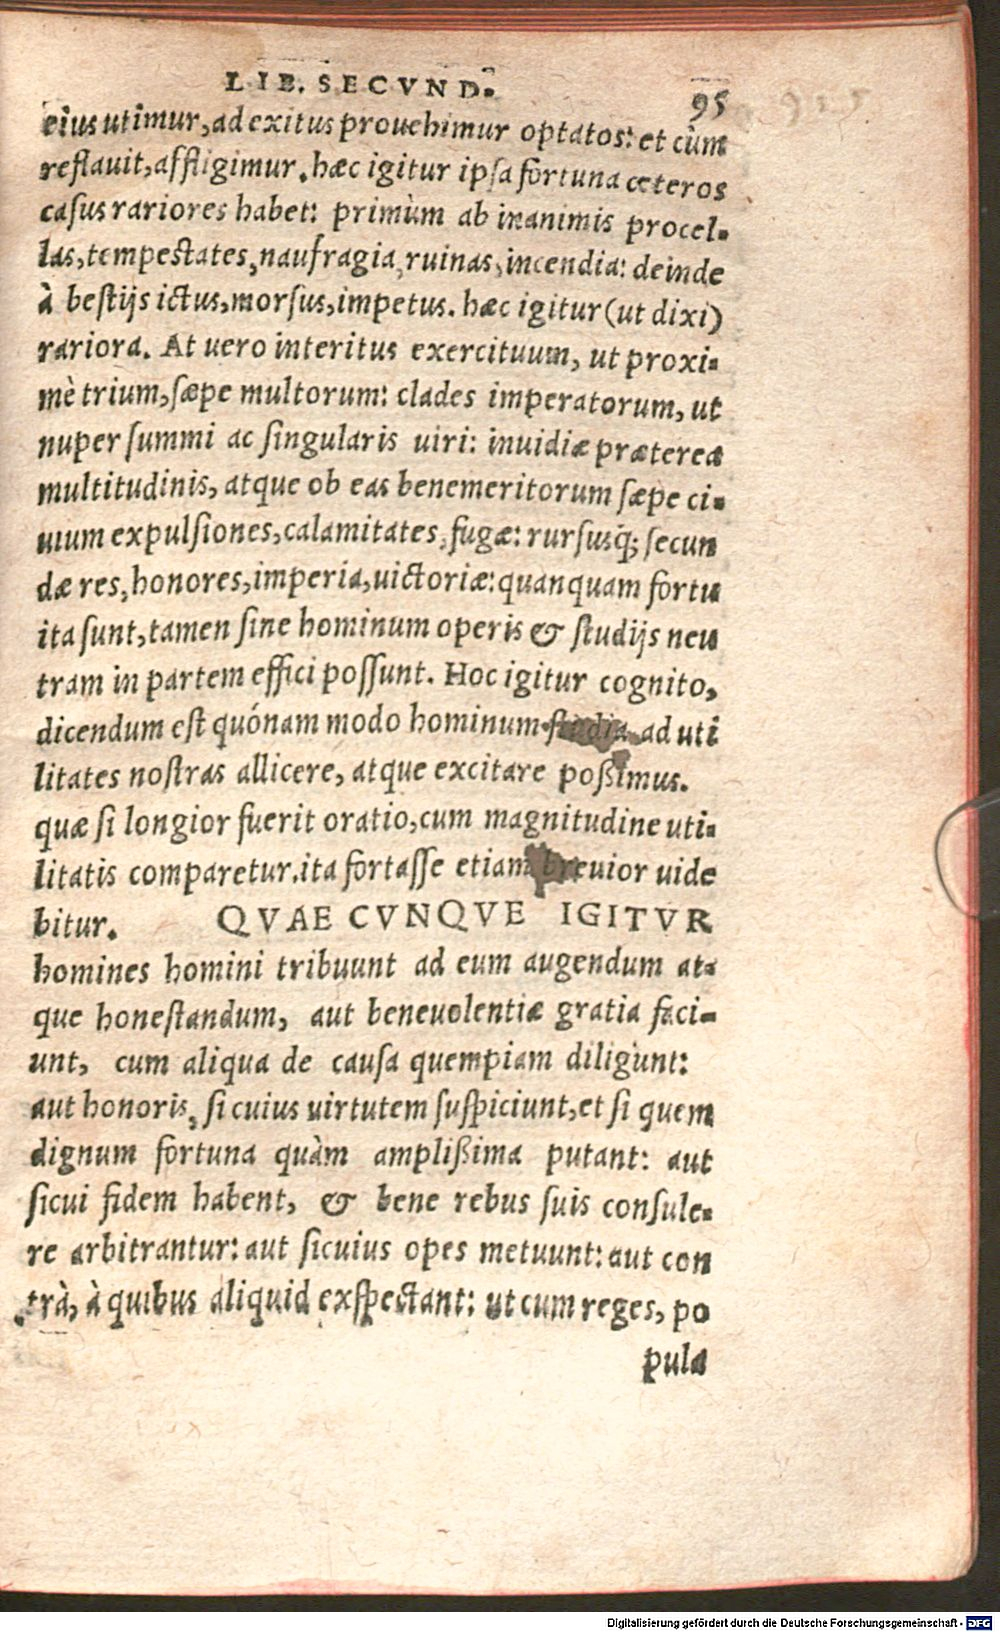 LIB. SECVND.
95
eius utimur, ad exitus prouehimur optatos: et cùm
reflauit, affligimur. hæc igitur ipsa fortuna ceteros
casus rariores habet: primùm ab inanimis procel-
las, tempestates, naufragia, ruinas, incendia: deinde
à bestijs ictus, morsus, impetus. hæc igitur (ut dixi)
rariora. At uero interitus exercituum, ut proxi-
mè trium, sæpe multorum: clades imperatorum, ut
nuper summi ac singularis uiri: inuidiæ præterea
multitudinis, atque ob eas benemeritorum sæpe ci-
uium expulsiones, calamitates, fugæ: rursusq́; secun
dæ res, honores, imperia, uictoriæ: quanquam fortu
ita sunt, tamen sine hominum operis & studijs neu
tram in partem effici possunt. Hoc igitur cognito,
dicendum est quónam modo hominum studia ad uti
litates nostras allicere, atque excitare poßimus.
quæ si longior fuerit oratio, cum magnitudine uti-
litatis comparetur. ita fortasse etiam breuior uide
bitur. QVAE CVNQVE IGITVR
homines homini tribuunt ad eum augendum at-
que honestandum, aut beneuolentiæ gratia faci-
unt, cum aliqua de causa quempiam diligunt:
aut honoris, si cuius uirtutem suspiciunt, et si quem
dignum fortuna quàm amplißima putant: aut
sicui fidem habent, & bene rebus suis consule-
re arbitrantur: aut sicuius opes metuunt: aut con
trà, à quibus aliquid exspectant: ut cum reges, po
pula
Digitalisierung gefördert durch die Deutsche Forschungsgemeinschaft - DFG